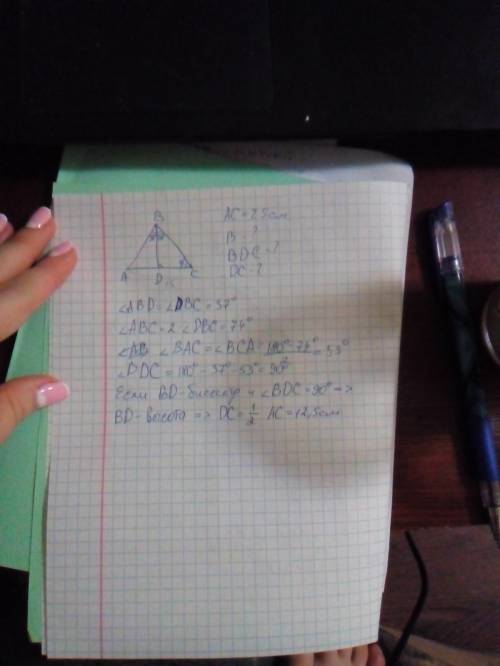 B
A D C
AC = 25 см
B - ?
BDC - ?
DC - ?
∠ABD = ∠DBC = 37°
∠ABC = 2 ∠DBC = 74°
∠BAC = ∠BCA = (180° - 74°)/2 = 53°
∠BDC = 180° - 37° - 53° = 90°
Если BD - биссектр и ∠BDC = 90° =>
BD - высота => DC = 1/2 AC = 12,5 см